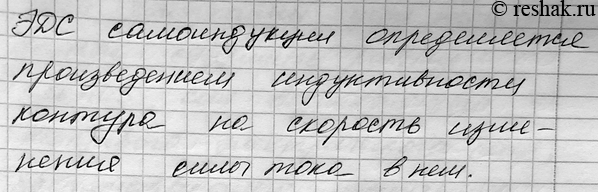 © reshak.ru
ЭДС самоиндукции определяется
произведением индуктивности
контура на скорость изме-
нения силы тока в нем.